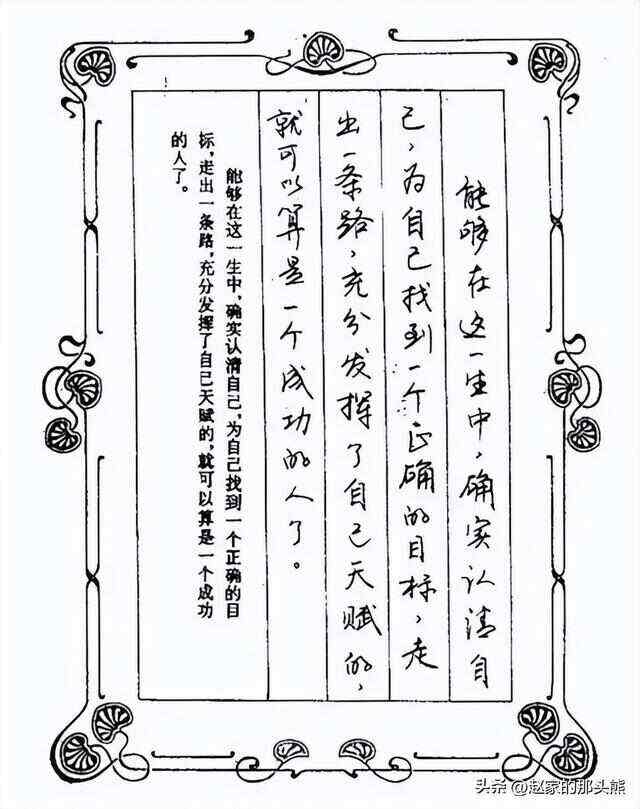 能够在这一生中，确实认清自
己，为自己找到一个正确的目标，走
出一条路，充分发挥了自己天赋的，
就可以算是一个成功的人了。
能够在这一生中，确实认清自己，为自己找到一个正确的目
标，走出一条路，充分发挥了自己天赋的，就可以算是一个成功
的人了。
头条 @赵家的那头熊